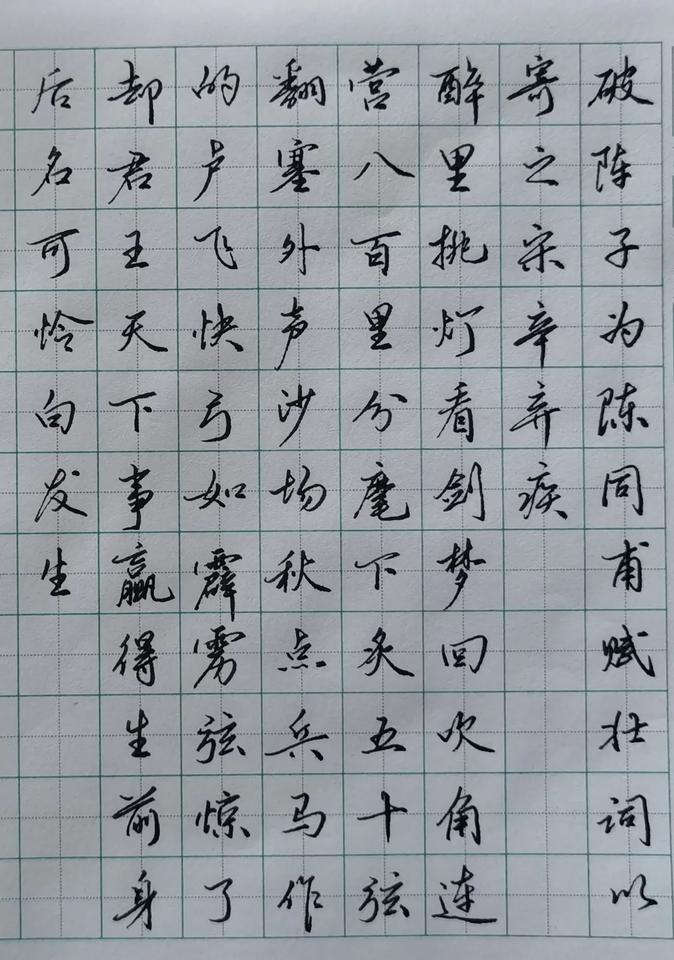 破阵子为陈同甫赋壮词以
寄之宋辛弃疾
醉里挑灯看剑梦回吹角连
营八百里分麾下炙五十弦
翻塞外声沙场秋点兵马作
的卢飞快弓如霹雳弦惊了
却君王天下事赢得生前身
后名可怜白发生